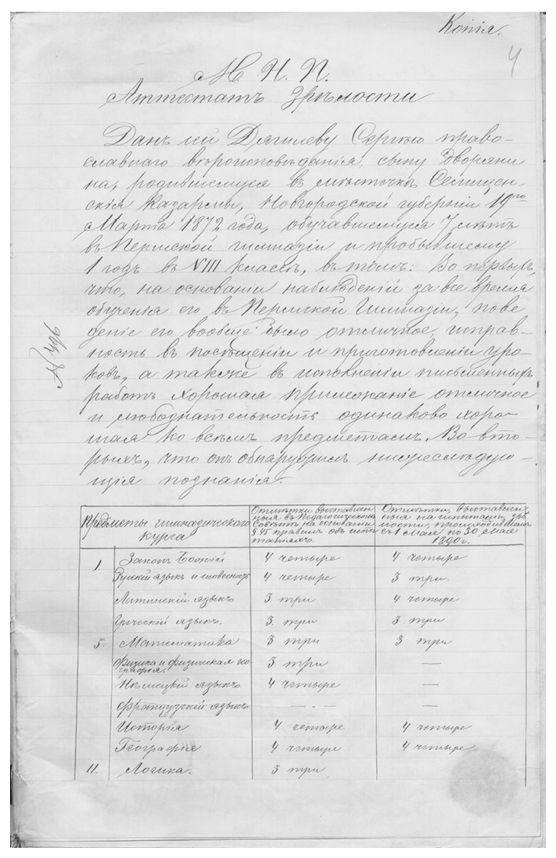 Копія.
4
М. Н. П.
Аттестатъ Зрѣлости
Данъ сей Дягилеву Сергѣю право-
славнаго вѣроисповѣданія, сыну Дворяни
на, родившемуся въ мѣстечкѣ Селищен-
скія Казармы, Новгородской губерніи 19го
Марта 1872 года, обучавшемуся 7 лѣтъ
въ Пермской гимназіи и пробывшему
1 годъ въ VIII классѣ, въ томъ: Во первыхъ,
что, на основаніи наблюденій за все время
обученія его въ Пермской Гимназіи, пове
деніе его вообще было отличное, исправ-
ность въ посѣщеніи и приготовленіи уро-
ковъ, а также въ исполненіи письменныхъ
работъ хорошая прилежаніе отличное
и любознательность одинаково хоро-
шая ко всѣмъ предметамъ. Во вто-
рыхъ, что онъ обнаружилъ нижеслѣдую-
щія познанія.
№ 496
Предметы гимназическаго курса
Отмѣтки выставлен
ныя въ Педагогическомъ
Совѣтѣ на основаніи
§ 45 правилъ объ испы
таніяхъ.
Отмѣтки, выставлен
ныя на испытаніи зрѣ
лости, происходившемъ
съ 1 Мая по 30 Мая
1890 г.
1. Законъ Божій 4 четыре 4 четыре
Русскій языкъ и словесность 4 четыре 3 три.
Латинскій языкъ 3 три 4 четыре
Греческій языкъ. 3 три. 3 три
5. Математика 3 три 3 три
Физика и физическая гео
графія. 3 три —
Нѣмецкій языкъ 4 четыре —
Французскій языкъ — —
Исторія 4 четыре 4 четыре
Географія 4 четыре 4 четыре
11. Логика. 3 три